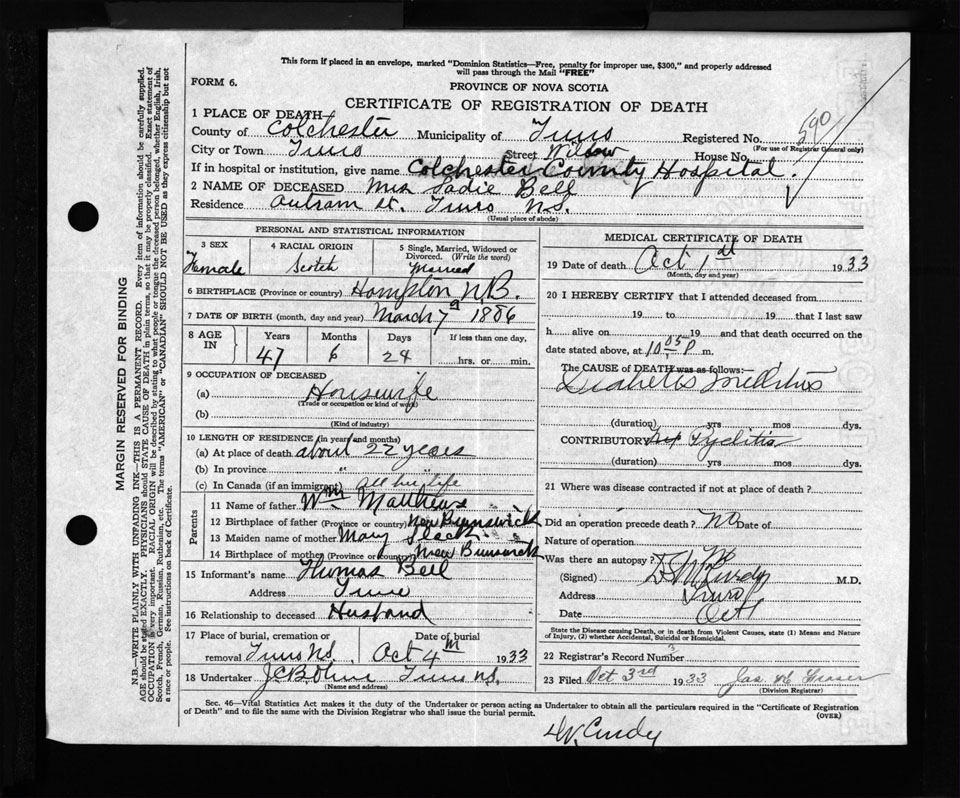 This form if placed in an envelope, marked "Dominion Statistics—Free, penalty for improper use, $300," and properly addressed
will pass through the Mail "FREE"
FORM 6.
PROVINCE OF NOVA SCOTIA
CERTIFICATE OF REGISTRATION OF DEATH
1 PLACE OF DEATH
County of Colchester Municipality of Truro Registered No. 590
(For use of Registrar General only)
City or Town Truro Street Willow House No.
If in hospital or institution, give name Colchester County Hospital.
2 NAME OF DECEASED Mrs Sadie Bell
Residence Outram St. Truro N.S.
(Usual place of abode)
PERSONAL AND STATISTICAL INFORMATION
3 SEX Female
4 RACIAL ORIGIN Scotch
5 Single, Married, Widowed or
Divorced. (Write the word)
Married
6 BIRTHPLACE (Province or country) Hampton N.B.
7 DATE OF BIRTH (month, day and year) March 7th 1886
8 AGE IN
Years Months Days If less than one day,
47 6 24 hrs. or min.
9 OCCUPATION OF DECEASED
(a) Housewife
(Trade or occupation or kind of work)
(b)
(Kind of industry)
10 LENGTH OF RESIDENCE (in years and months)
(a) At place of death about 22 years
(b) In province " "
(c) In Canada (if an immigrant) all her life
Parents
11 Name of father Wm Matthews
12 Birthplace of father (Province or country) New Brunswick
13 Maiden name of mother Mary
14 Birthplace of mother (Province or country) New Brunswick
15 Informant's name Thomas Bell
Address Truro
16 Relationship to deceased Husband
17 Place of burial, cremation or Date of burial
removal Truro N.S. Oct 4th 1933
18 Undertaker Truro N.S.
(Name and address)
MEDICAL CERTIFICATE OF DEATH
19 Date of death Oct 1st 1933
(Month, day and year)
20 I HEREBY CERTIFY that I attended deceased from
19 to 19 that I last saw
h alive on 19 and that death occurred on the
date stated above, at 10.05 P m.
The CAUSE OF DEATH was as follows:
Diabetes mellitus
(duration) yrs mos dys.
CONTRIBUTORY Pyelitis
(duration) yrs mos dys.
21 Where was disease contracted if not at place of death?
Did an operation precede death? No Date of
Nature of operation
Was there an autopsy? No
(Signed) M.D.
Address Truro
Date Oct
State the Disease causing Death, or in death from Violent Causes, state (1) Means and Nature
of Injury, (2) whether Accidental, Suicidal or Homicidal.
22 Registrar's Record Number
23 Filed Oct 3rd 1933 Jas Fraser
(Division Registrar)
Sec. 46—Vital Statistics Act makes it the duty of the Undertaker or person acting as Undertaker to obtain all the particulars required in the "Certificate of Registration
of Death" and to file the same with the Division Registrar who shall issue the burial permit.
(OVER)
MARGIN RESERVED FOR BINDING
N.B.—WRITE PLAINLY WITH UNFADING INK—THIS IS A PERMANENT RECORD. Every item of information should be carefully supplied.
AGE should be stated EXACTLY. PHYSICIANS should STATE CAUSE OF DEATH in plain terms, so that it may be properly classified. Exact statement of
OCCUPATION is very important. RACIAL ORIGIN will be described by stating to what people or tongue the deceased person belonged, whether English, Irish,
Scotch, French, German, Russian, Ruthenian, etc. The terms "AMERICAN" or "CANADIAN" SHOULD NOT BE USED as they express citizenship but not
a race or people. See instructions on back of Certificate.